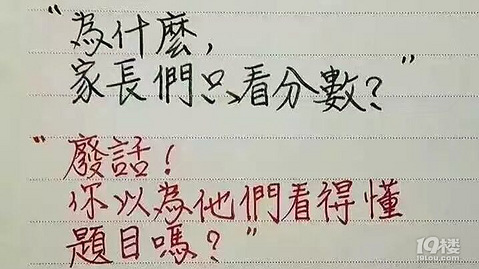 "為什麼,
家長們只看分數?"
"廢話!
你以為他們看得懂
題目嗎?"
19楼
19lou.com